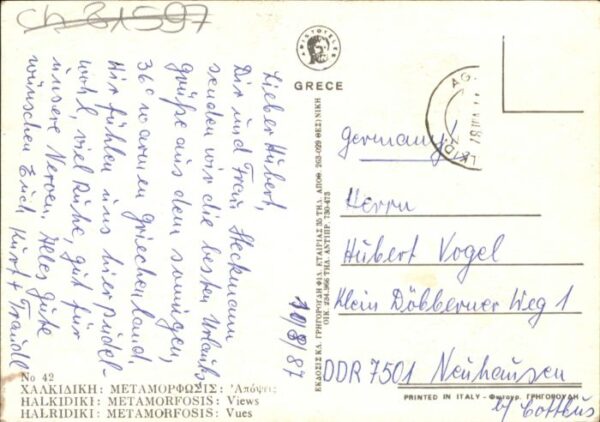 ch 81597
Lieber Hubert,
Dir und Frau Heckmann
senden wir die besten Urlaubs
grüße aus dem sonnigen,
36° warmen Griechenland.
Wir fühlen uns hier pudel-
wohl, viel Ruhe, gut für
unsere Nerven. Alles Gute
wünschen Euch Kurt + Traudl
10/8/87
No 42
ΧΑΛΚΙΔΙΚΗ: ΜΕΤΑΜΟΡΦΩΣΙΣ: Ἀπόψεις
HALKIDIKI: METAMORFOSIS: Views
HALRIDIKI: METAMORFOSIS: Vues
ΑΡΙΣΤΟΤΕΛΗΣ
GRECE
ΕΚΔΟΣΙΣ ΚΛ. ΓΡΗΓΟΡΟΥΔΗ ΦΙΛ. ΕΤΑΙΡΙΑΣ 35 ΤΗΛ. ΑΠΟΘ. 263-029 ΘΕΣ)ΝΙΚΗ
ΟΙΚ. 234.966 ΤΗΛ. ΑΝΤΙΠΡ. 730-475
Germany
Herrn
Hubert Vogel
Klein Döbberner Weg 1
DDR 7501 Neuhausen
b/ Cottbus
PRINTED IN ITALY - Φωτογρ. ΓΡΗΓΟΡΟΥΔΗ